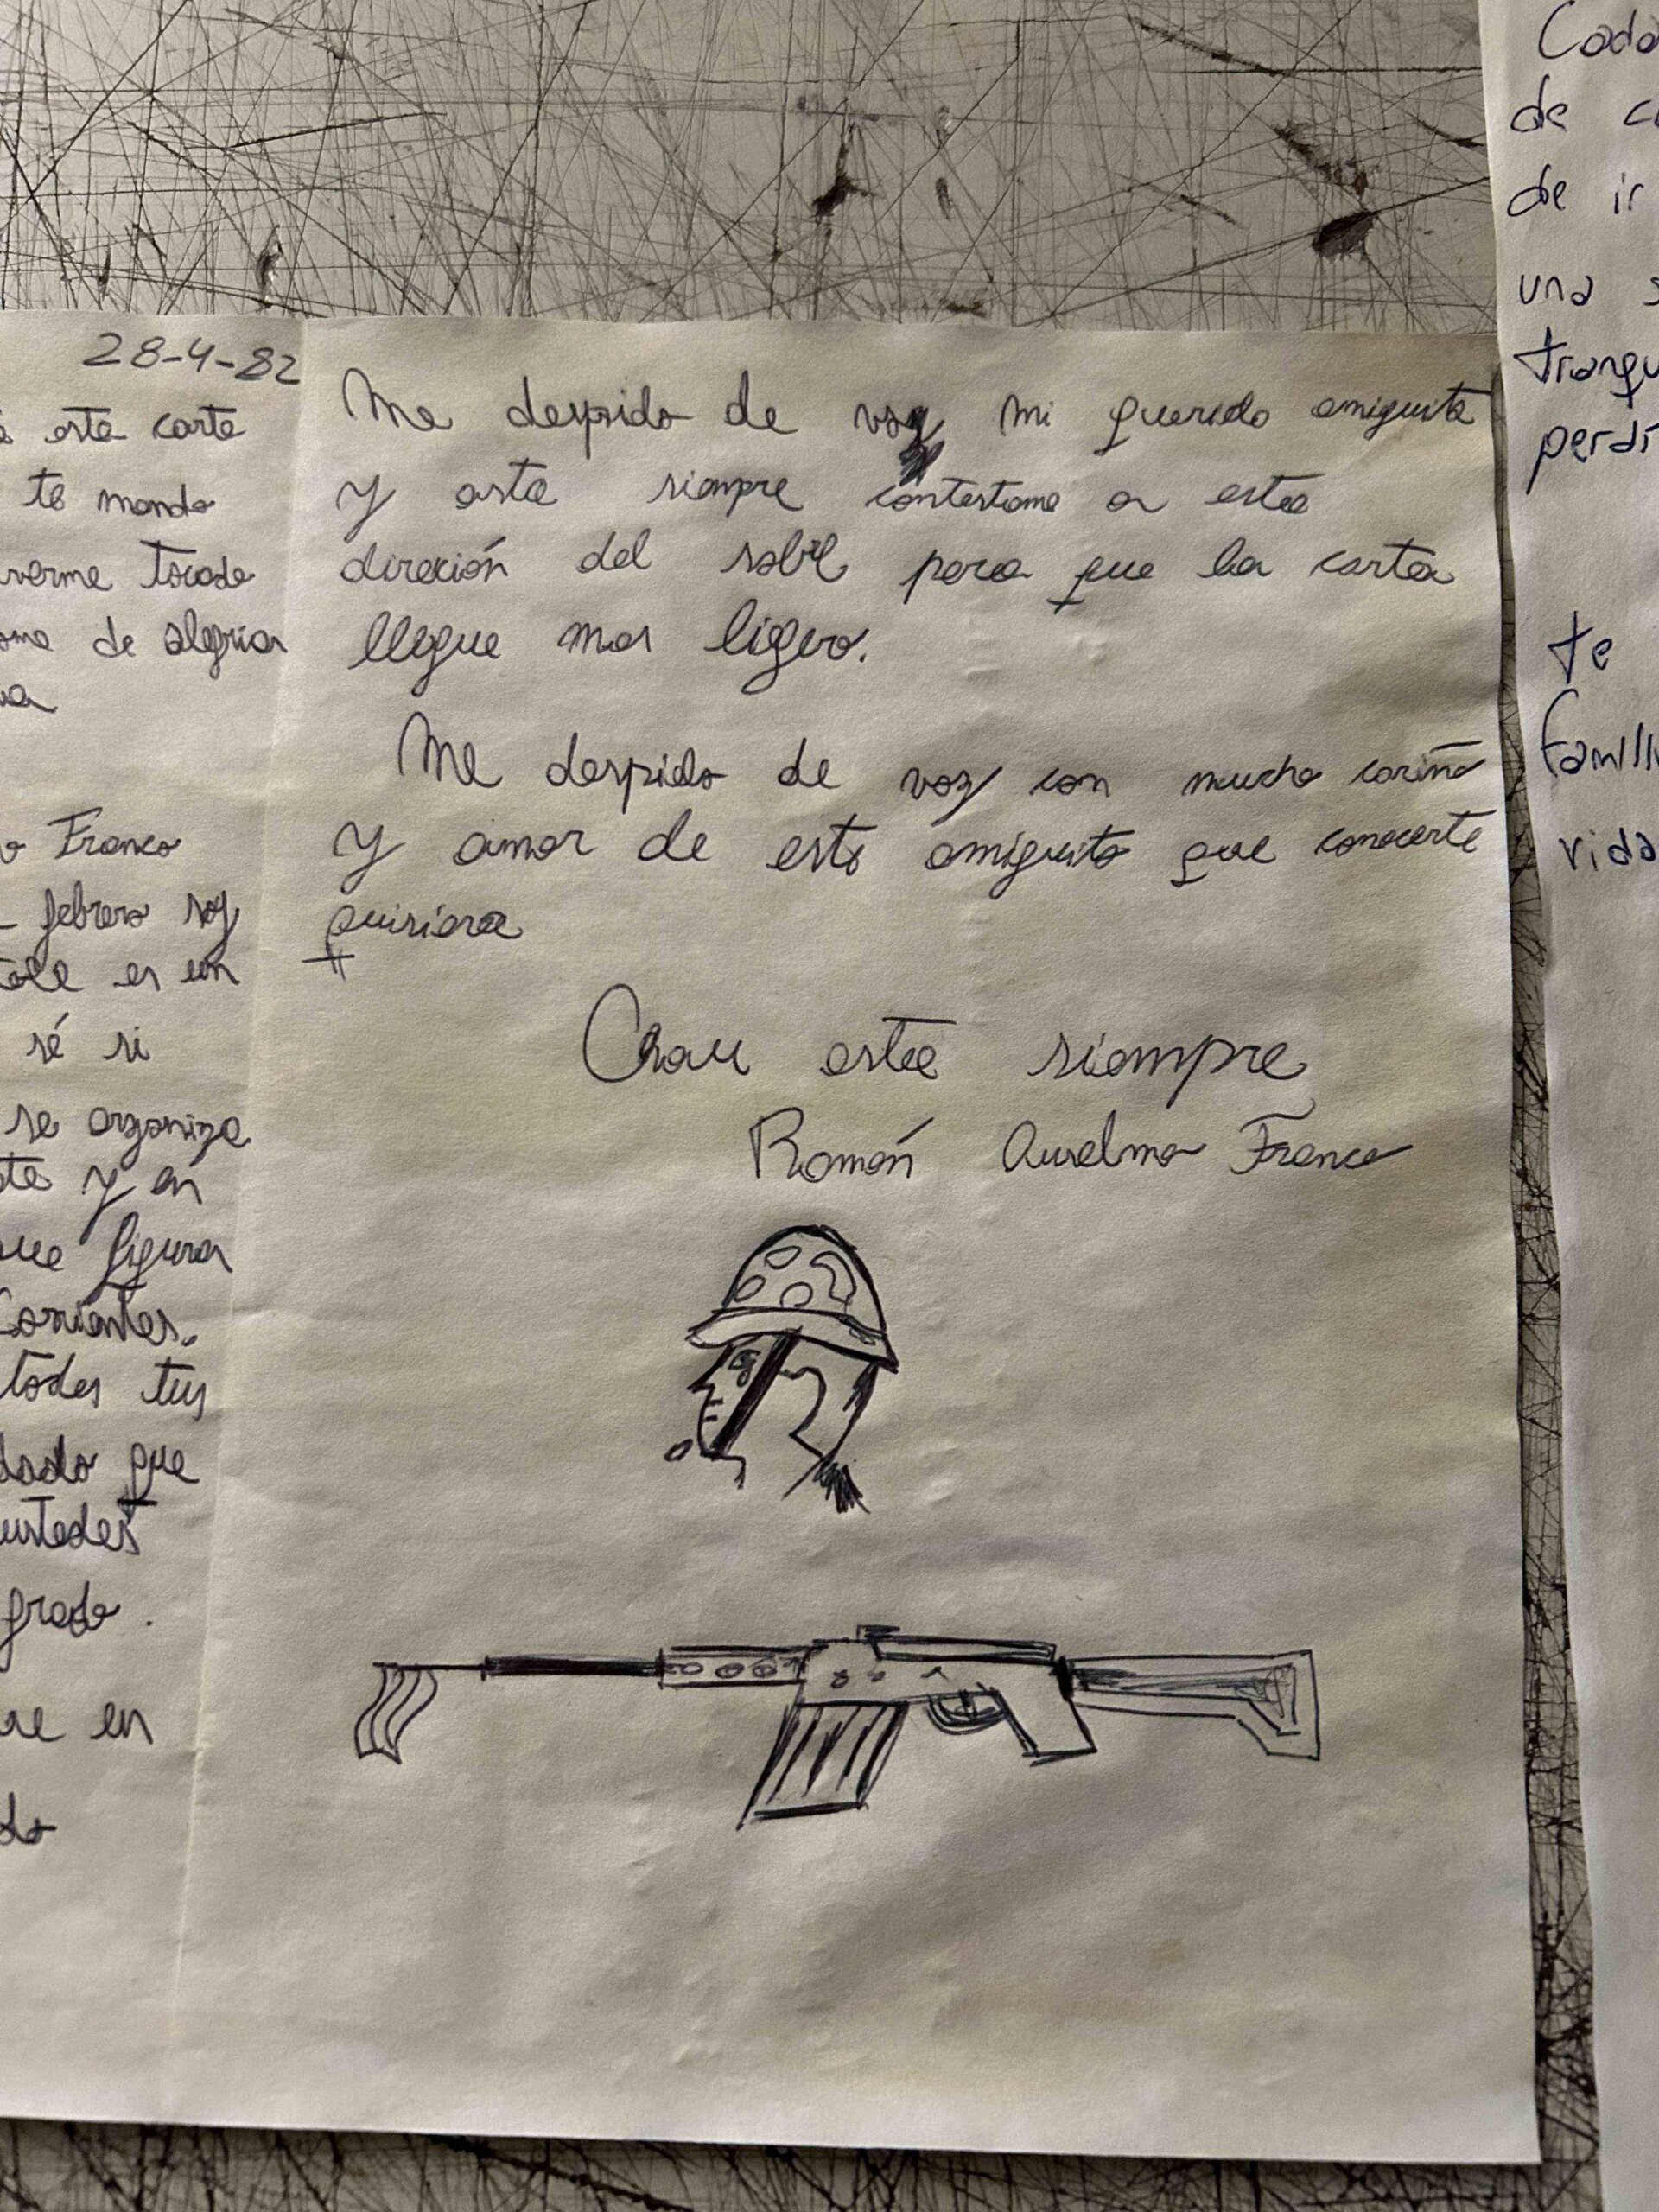 28-4-82
esta carta
te mando
verme tocado
de alegria
Franco
febrero soy
es un
sé si
se organiza
y en
que figura
Corrientes.
todos tus
que
ustedes
grado.
en
Me despido de voz mi querido amiguito
y asta siempre contestame a esta
direxión del sobre para que la carta
llegue mas ligero.
Me despido de voz con mucho cariño
y amor de este amiguito que conocerte
quisiera
Chau asta siempre
Román Anselmo Franco
Cada
de
de ir
una
perdí
te
vida